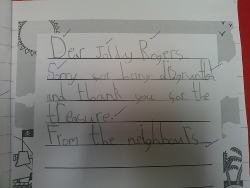 Dear Jolly Rogers
Sorry for being disgruntled
and thank you for the
treasure.
From the neighbours